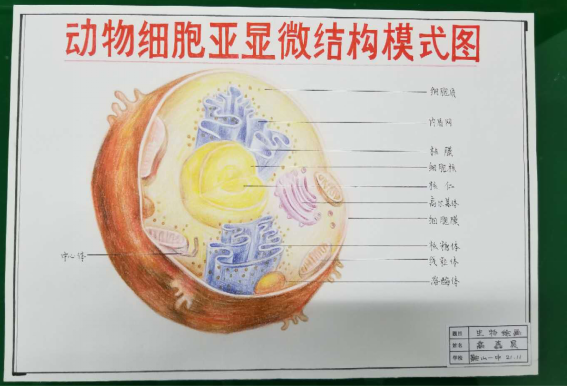 动物细胞亚显微结构模式图
细胞质
内质网
核膜
细胞核
核仁
高尔基体
细胞膜
核糖体
线粒体
溶酶体
中心体
题目 生物绘画
姓名
学校 鞍山一中 21.11